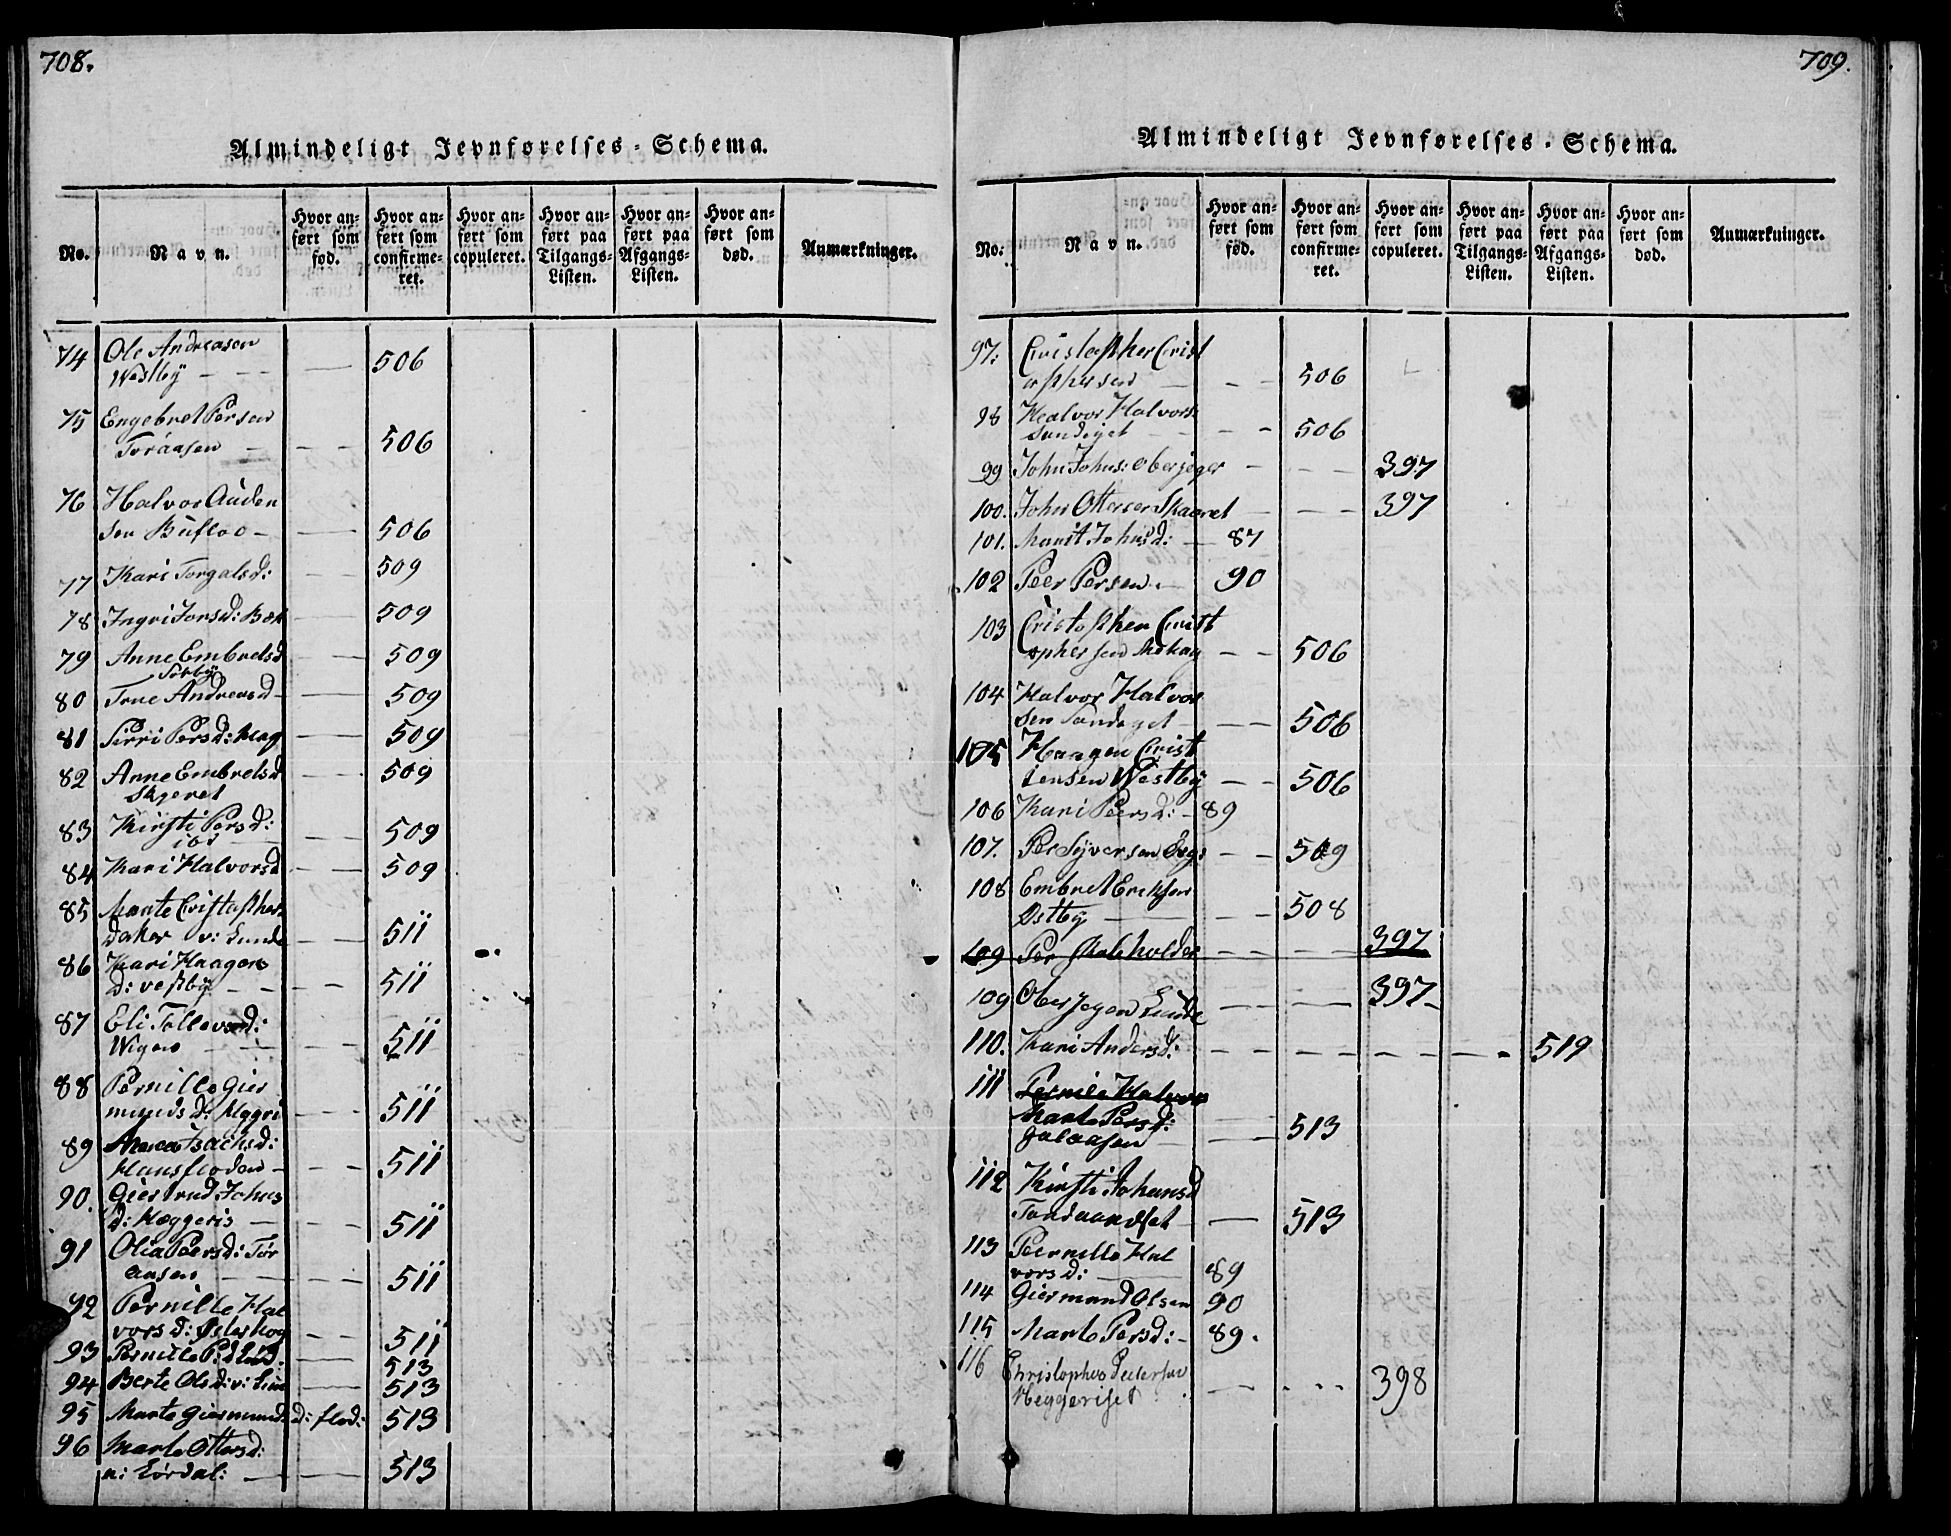 708.
Almindeligt Jevnførelses-Schema.
No.
Navn.
Hvor an-
ført som
fød.
Hvor an-
ført som
confirme-
ret.
Hvor an-
ført som
copuleret.
Hvor an-
ført paa
Tilgangs-
Listen.
Hvor an-
ført paa
Afgangs-
Listen.
Hvor an-
ført som
død.
Anmærkninger.
74 Ole Andreasen
Westbÿ - - - — 506
75 Engebret Persen
Toråasen - - - 506
76 Halvor Auden
sen Bufloo - — 506
77 Kari Torgalsd: - - 509
78 Ingri Jonsd: Bæk — 509
79 Anne Embretsd — 509
Sørbÿ
80 Trne Andreasd - — 509
81 Sirri Persd: Hag — 509
82 Anne Embretsd — 509
Skjeret
83 Kirsti Persd:
ibd — - - 509
84 Kari Halvorsd — 509
85 Marte Cristopher
daker v: Lunde - — 511
86 Kari Haagens
d: vestbÿ - - - - 511
87 Eli Tollevsd:
Wigen - - — 511
88 Pernille Gier
munds d: Hggri - - - 511
89 Isachsd:
Hansfloden - - - 511
90. Giertrud Johns
d: Heggeris - - - 511
91 Olia Peersd: Tør
aasen — - - 511
92 Pernille Hal
vors d: Østerhog - - 511
93 Pernille — 513
94 Berte Olsd: v: — 513
95 Marte Giermunds d: flod: 513
96 Marte Ottersd:
n: Lørdal: — — 513
709.
Almindeligt Jevnførelses-Schema.
No:
Navn.
Hvor an-
ført som
fød.
Hvor an-
ført som
confirme-
ret.
Hvor an-
ført som
copuleret.
Hvor an-
ført paa
Tilgangs-
Listen.
Hvor an-
ført paa
Afgangs-
Listen.
Hvor an-
ført som
død.
Anmærkninger.
97: Cristopher Crist
ophersen — - - 506
98 Healvor Halvors:
Sundeget - - - 506
99 John Johns: oberjeger - - - 397
100. John Ottersen Skaaret - - - 397
101. Marit Johnsd: — 87
102 Peer Persen. — 90
103 Cristopher Crist
ophersen - - 506
104 Halvor Halvor
sen Sundeget - - - 506
105 Haagen Crist
iensen Westbÿ - - 506
106 Kari Peersd: - 89
107. Per Syversen - - 509
108 Embret Eriksen
Østby — - - 508
109 Per Skaleholder - - - - 397
109 Ober Jegen Lunde — — 397-
110. Kari Andersd: - - - - - - - - 519
111 Pernile Halvors
Marte Persd:
— 513
112 Kirsti Johansd
— 513
113 Pernille Hal
vorsd: — 89
114 Giermund Olsen 90
115 Marte Persd: - 89.
116 Christopher Pedersen
Heggeriset - - - - - 398